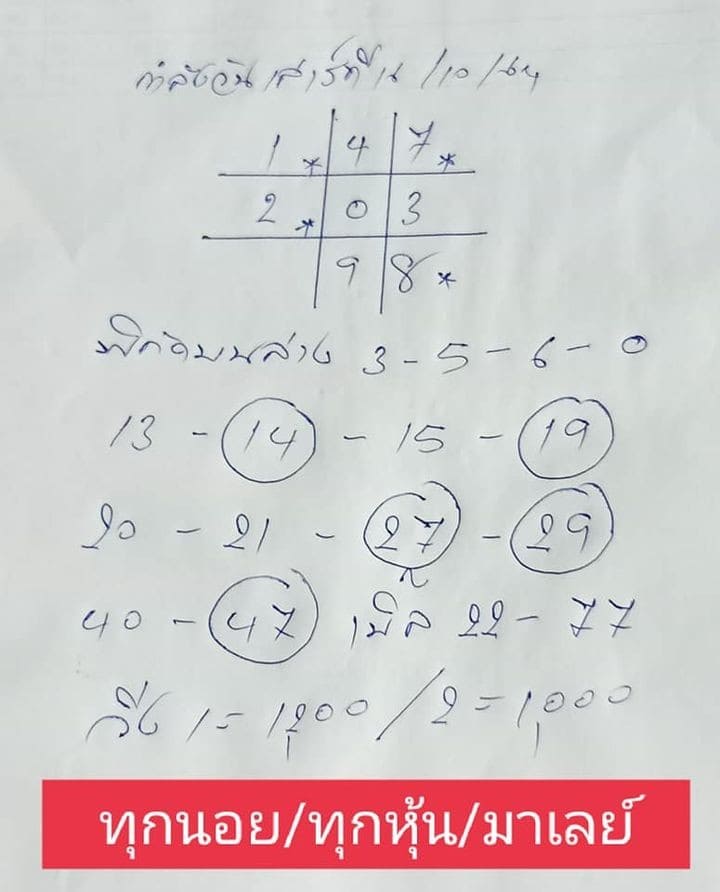 กำลังวันเสาร์ที่
1* 4 7*
2* 0 3
9 8*
3 - 5 - 6 - 0
13 - 14 - 15 - 19
20 - 21 - 27 - 29
40 - 47 เบิ้ล 22 - 77
วิ่ง 1 = 1,200 / 2 = 1,000
ทุกนอย/ทุกหุ้น/มาเลย์